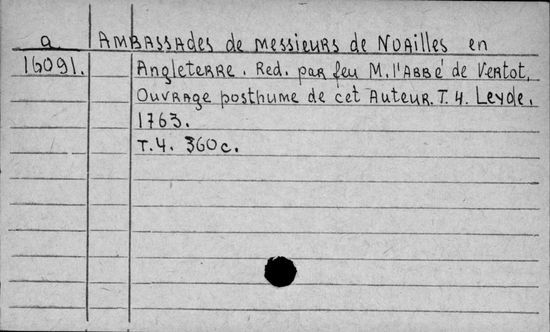 a AMBASSADES de MESSIEURS de NOAILLES en
16091. ANGLETERRE. Red. par feu M. l'ABBÉ de VERTOT,
OUVRAGE posthume de cet AUTEUR. T. 4. Leyde.
1763.
T. 4. 360 c.